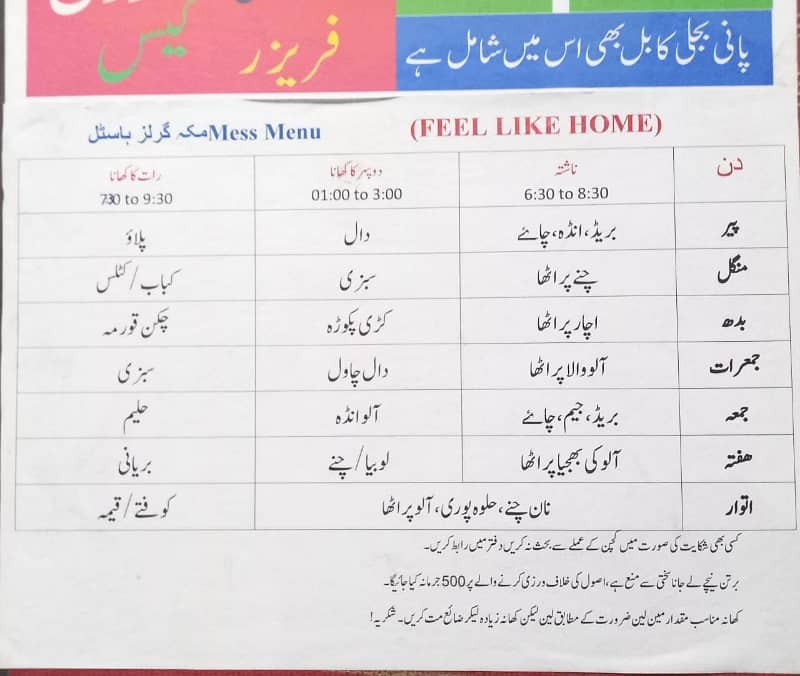 گیس
فریزر
پانی بجلی کا بل بھی اس میں شامل ہے
مکہ گرلز ہاسٹل Mess Menu (FEEL LIKE HOME)
دن ناشتہ 6:30 to 8:30 دوپہر کا کھانا 01:00 to 3:00 رات کا کھانا 7:30 to 9:30
پیر بریڈ، انڈہ، چائے دال پلاؤ
منگل چنے پراٹھا سبزی کباب/کٹلس
بدھ اچار پراٹھا کڑی پکوڑہ چکن قورمہ
جمعرات آلو والا پراٹھا دال چاول سبزی
جمعہ بریڈ، جیم، چائے آلو انڈہ حلیم
ہفتہ آلو کی بھجیا پراٹھا لوبیا/چنے بریانی
اتوار نان چنے، حلوہ پوری، آلو پراٹھا کوفتے/قیمہ
کسی بھی شکایت کی صورت میں کچن کے عملے سے بحث نہ کریں دفتر میں رابطہ کریں۔
برتن نیچے لے جانا سختی سے منع ہے، اصول کی خلاف ورزی کرنے والے پر 500 جرمانہ کیا جائیگا۔
کھانہ مناسب مقدار مین لین ضرورت کے مطابق لین لیکن کھانہ زیادہ لیکر ضائع مت کریں۔ شکریہ!